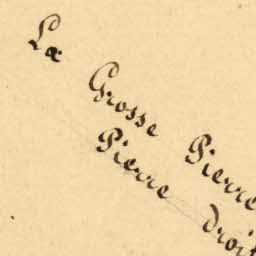 La Grosse Pierre
Pierre droit